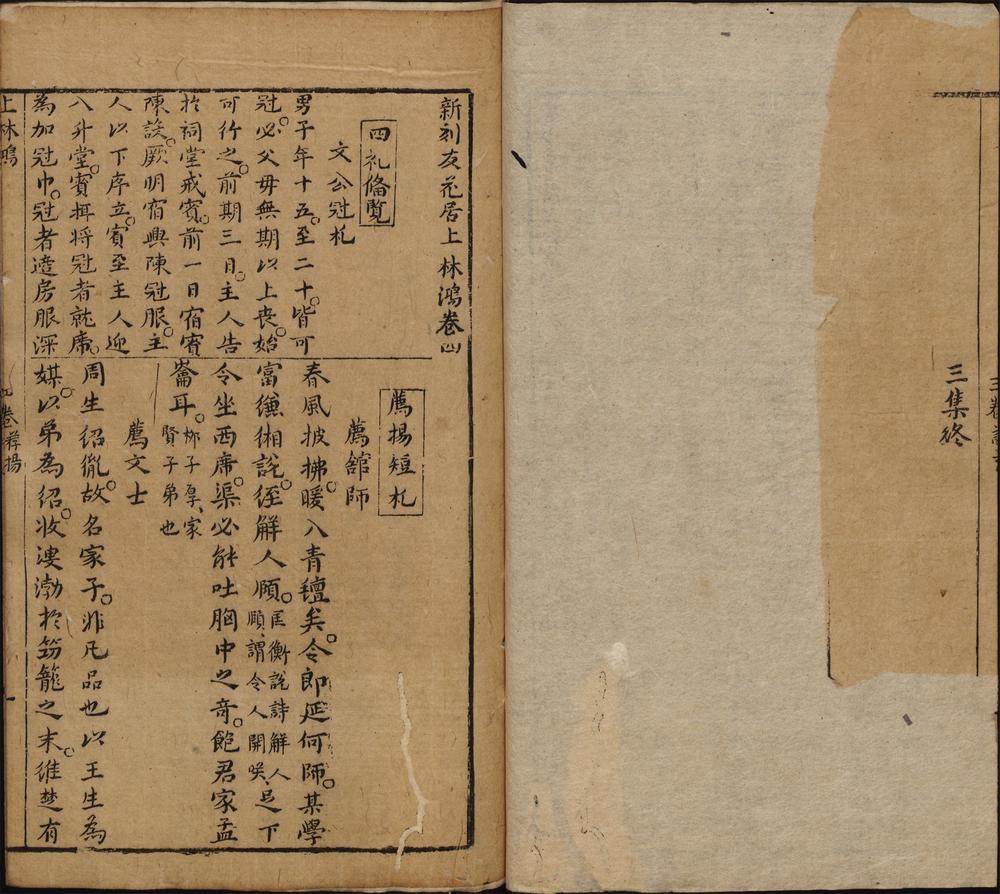 三集終
新刻友花居上林鴻卷四
四礼偹覽
文公冠礼
男子年十五至二十皆可
冠必父母無期以上丧始
可行之前期三日主人告
扵祠堂戒賔前一日宿賔
陳設厥明宿興陳冠服主
人以下序立賔至主人迎
入升堂賔揖将冠者就席
為加冠巾冠者適房服深
薦揚短札
薦舘師
春風披拂暖入青氊矣令郎延何師某學
富縑緗説經解人頤匡衡説詩解人
頤謂令人開咲足下
令坐西席渠必能吐胸中之奇飽君家孟
嵞耳柳子厚家
賢子弟也
薦文士
周生紹胤故名家子非凡品也以王生為
媒以弟為紹收溲渤於笏籠之末維楚有
上林鴻
四卷薦揚
一